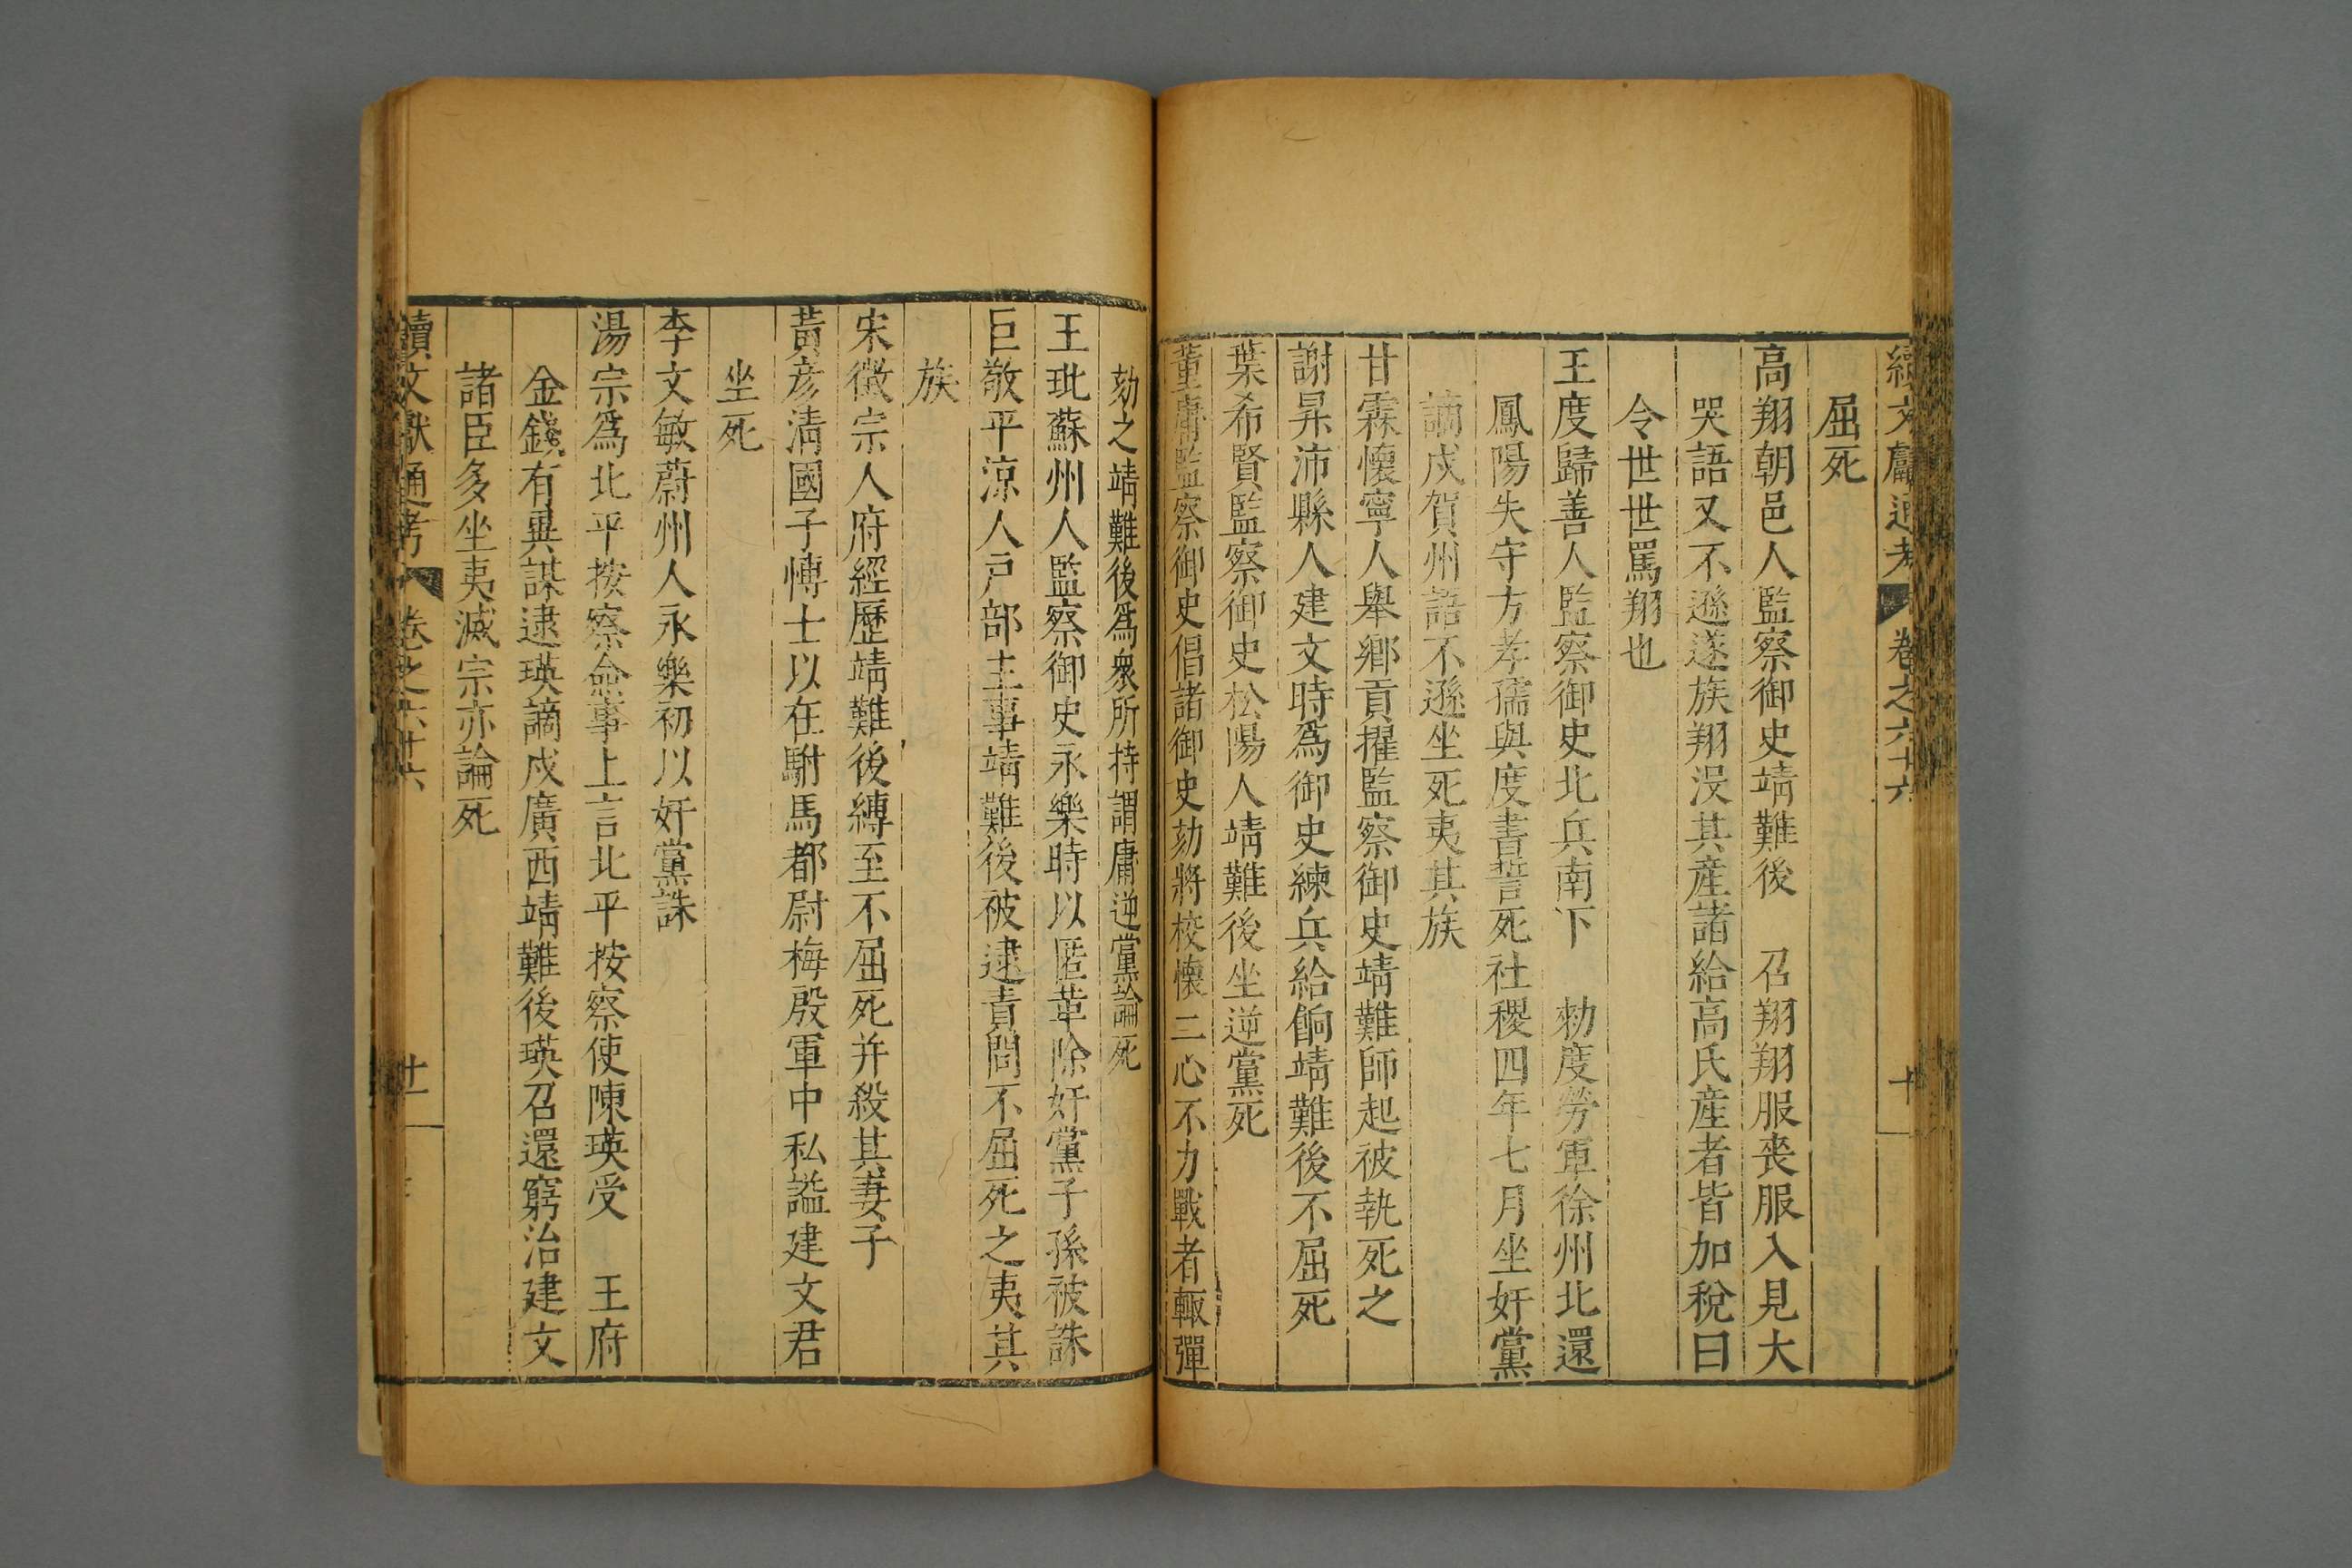 續文獻通考 卷之六十六 十
屈死
高翔朝邑人監察御史靖難後 召翔翔服喪服入見大
哭語又不遜遂族翔沒其產諸給高氏產者皆加稅曰
令世世罵翔也
王度歸善人監察御史北兵南下 勑度勞軍徐州北還
鳳陽失守方孝孺與度書誓死社稷四年七月坐奸黨
謫戍賀州語不遜坐死夷其族
甘霖懷寧人舉鄉貢擢監察御史靖難師起被執死之
謝昇沛縣人建文時爲御史練兵給餉靖難後不屈死
葉希賢監察御史松陽人靖難後坐逆黨死
董庸監察御史倡諸御史劾將校懷二心不力戰者輙彈
劾之靖難後爲衆所持謂庸逆黨論死
王玭蘇州人監察御史永樂時以匿革除奸黨子孫被誅
巨敬平涼人戸部主事靖難後被逮責問不屈死之夷其
族
宋徵宗人府經歷靖難後縛至不屈死并殺其妻子
黃彥淸國子愽士以在駙馬都尉梅殷軍中私謚建文君
坐死
李文敏蔚州人永樂初以奸黨誅
湯宗爲北平按察僉事上言北平按察使陳瑛受 王府
金錢有異謀逮瑛謫戍廣西靖難後瑛召還窮治建文
諸臣多坐夷滅宗亦論死
續文獻通考 卷之六十六 十一